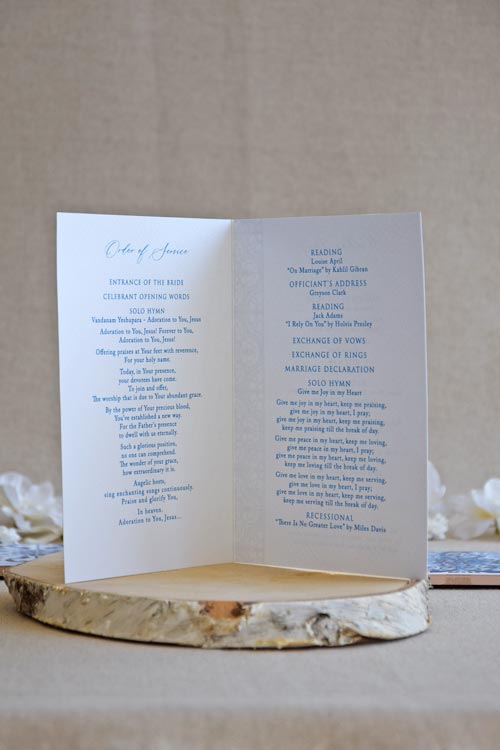 Order of Service
ENTRANCE OF THE BRIDE
CELEBRANT OPENING WORDS
SOLO HYMN
Vandanam Yeshupara - Adoration to You, Jesus
Adoration to You, Jesus! Forever to You,
Adoration to You, Jesus!
Offering praises at Your feet with reverence,
For your holy name.
Today, in Your presence,
your devotees have come.
To join and offer,
The worship that is due to Your abundant grace.
By the power of Your precious blood,
You've established a new way.
For the Father's presence
to dwell with us eternally.
Such a glorious position,
no one can comprehend.
The wonder of your grace,
how extraordinary it is.
Angelic hosts,
sing enchanting songs continuously.
Praise and glorify You,
In heaven.
Adoration to You, Jesus...
READING
Louise April
"On Marriage" by Kahlil Gibran
OFFICIANT'S ADDRESS
Greyson Clark
READING
Jack Adams
"I Rely On You" by Hoivis Presley
EXCHANGE OF VOWS
EXCHANGE OF RINGS
MARRIAGE DECLARATION
SOLO HYMN
Give me Joy in my Heart
Give me joy in my heart, keep me praising,
give me joy in my heart, I pray;
give me joy in my heart, keep me praising,
keep me praising till the break of day.
Give me peace in my heart, keep me loving,
give me peace in my heart, I pray;
give me peace in my heart, keep me loving,
keep me loving till the break of day.
Give me love in my heart, keep me serving,
give me love in my heart, I pray;
give me love in my heart, keep me serving,
keep me serving till the break of day.
RECESSIONAL
"There Is No Greater Love" by Miles Davis